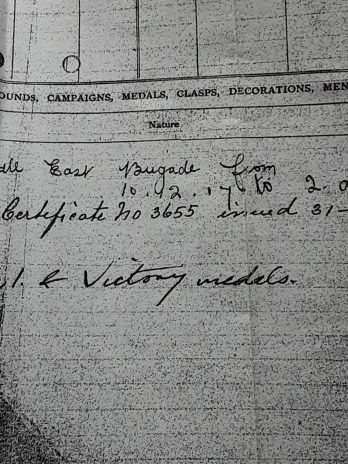 OUNDS, CAMPAIGNS, MEDALS, CLASPS, DECORATIONS, MEN
Nature
East Brigade from
10.12.17 to 2.
Certificate No 3655 issued 31-
. & Victory medals.